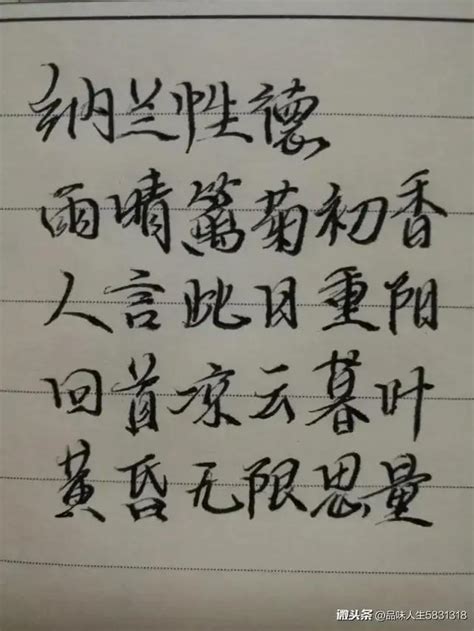 纳兰性德
雨晴篱菊初香
人言此日重阳
回首凉云暮叶
黄昏无限思量
微头条 @品味人生5831318